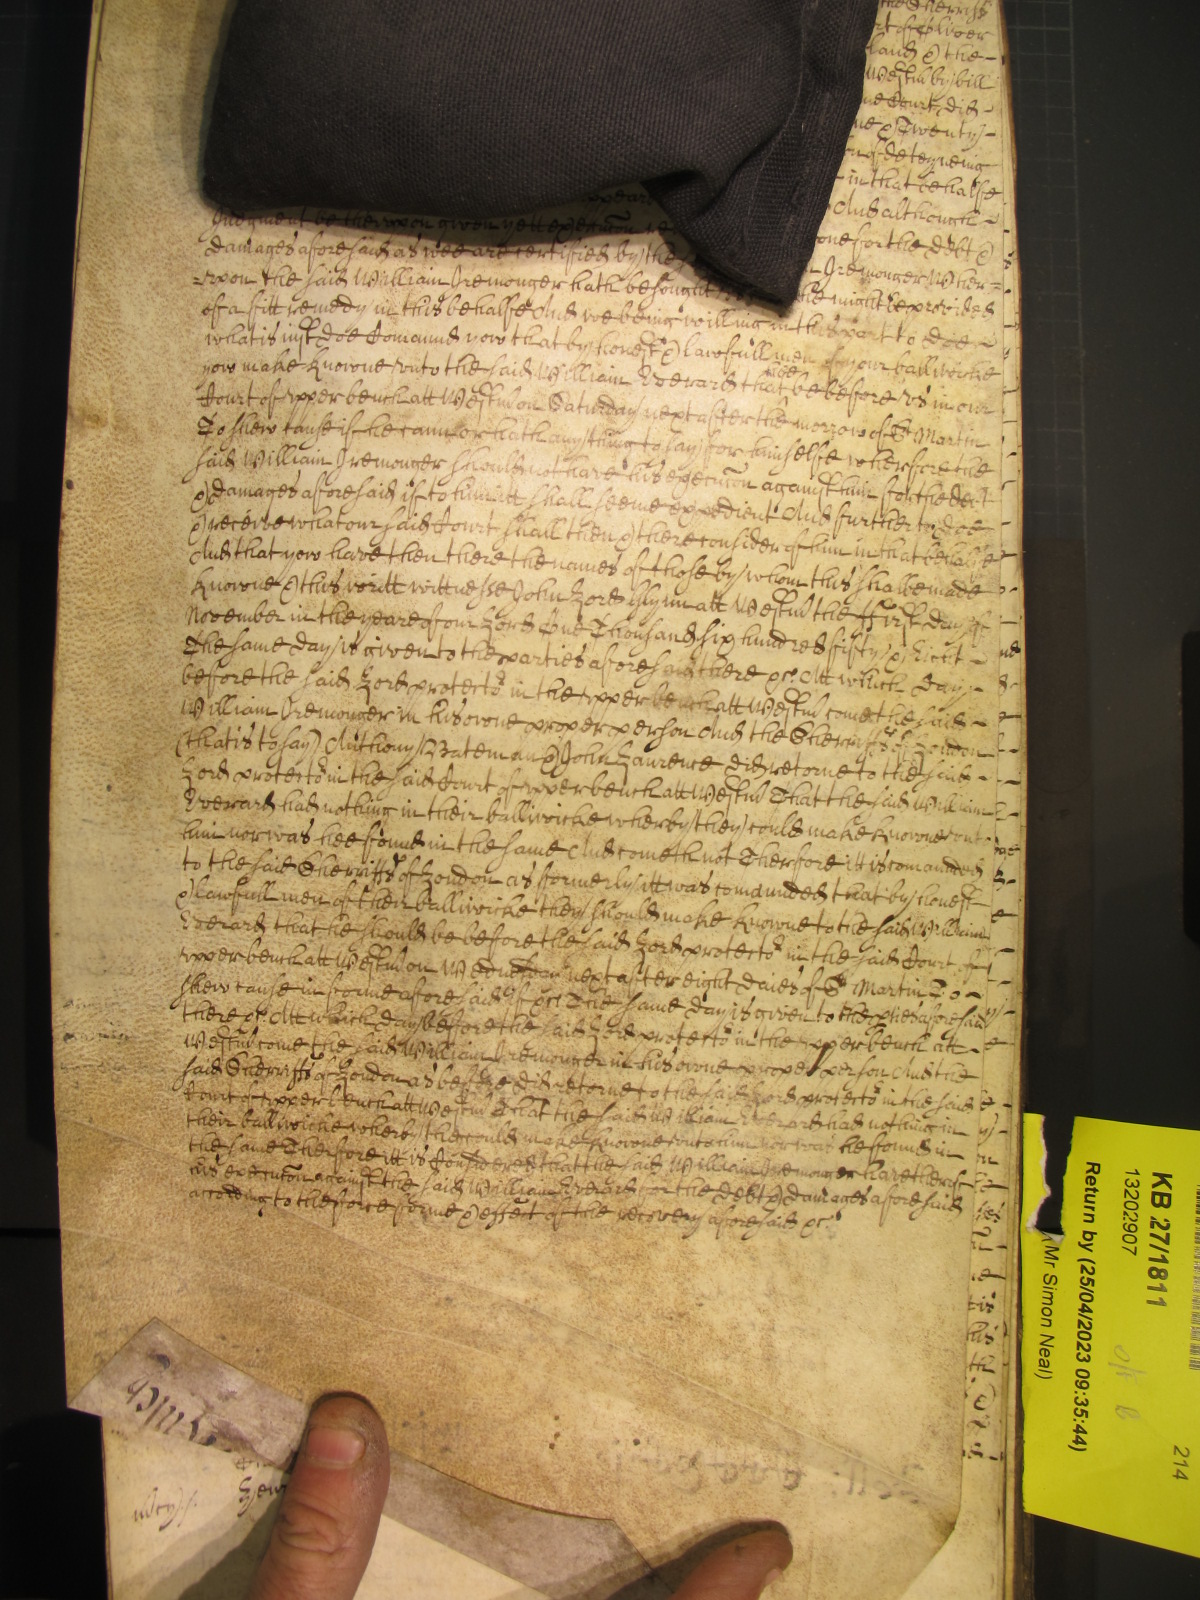 the Sherriffs
rt of upper
land & the
Westm by bill
me Court did
me & Twenty
of deteyneing
in that behalfe
Judgment be therupon given yett execucon And although
damages aforesaid as wee are certified by the one for the debt &
upon the said William Iremonger hath besought Iremonger Wher=
of a fitt remedy in this behalfe And we being willing in this part to doe he might be provided
what is iust doe Comaund yow that by honest & lawfull men of your balliwicke
yow make knowne unto the said William Everard that hee be before us in our
Court of upper bench att Westm on Saturday next after the morrow of St Martin
To shew cause if he cann or hath any thing to say for himselfe wherfore the
said William Iremonger should not have his execucon against him for the debt
& damages aforesaid if to him itt shall seeme expedient And further to doe
& receive what our said Court shall then & there consider of him in that behalfe
And that yow have then there the names of those by whom this shalbe made
knowne & this writt wittnesse John Lord Glynn att Westm the first day of
November in the yeare of our Lord One Thousand six hundred fifty & Eight
The same day is given to the parties aforesaid there &c. Att which day
before the said Lord protector in the upper bench att Westm come the said
William Iremonger in his owne proper person And the Sherriffs of London
(that is to say) Anthony Bateman & John Laurence did retorne to the said
Lord protector in the said Court of upper bench att Westm That the said William
Everard had nothing in their balliwicke wherby they could make knowne unto
him nor was hee found in the same And cometh not Therfore itt is comaunded
to the said Sherriffs of London as formerly itt was comaunded that by honest
& lawfull men of their balliwicke they should make knowne to the said William
Everard that he should be before the said Lord protector in the said Court of
upper bench att Westm on Wednesday next after eight daies of St Martin To
shew cause in forme aforesaid if &c. The same day is given to the pties aforesaid
there &c. Att which day before the said Lord protector in the upper bench att
Westm come the said William Iremonger in his owne proper person And the
said Sherriffs of London as before did retorne to the said Lord protector in the said
Court of upper bench att Westm That the said William Everard had nothing in
their balliwicke wherby they could make knowne unto him nor was he found in
the same Therfore itt is Considered that the said William Iremonger have therof
his execucon against the said William Everard for the debt & damages aforesaid
according to the force forme & effect of the recovery aforesaid &c.
KB 27/1811
13202907
Return by (25/04/2023 09:35:44)
Mr Simon Neal)
214